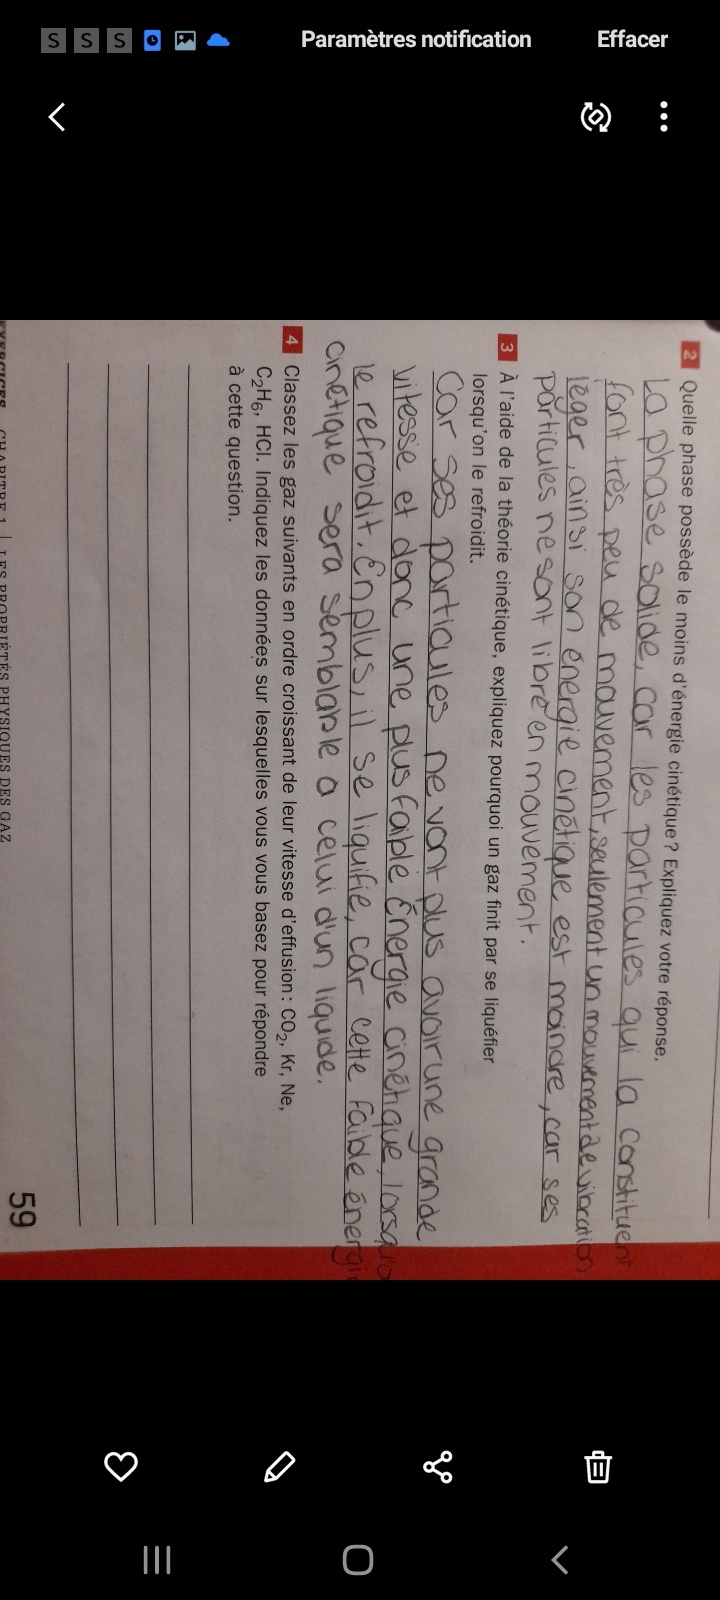 S S S Paramètres notification Effacer
2 Quelle phase possède le moins d'énergie cinétique? Expliquez votre réponse.
La phase solide, car les particules qui la constituent
font très peu de mouvement, seulement un mouvement de vibration
léger, ainsi son énergie cinétique est moindre, car ses
particules ne sont libre en mouvement.
3 À l'aide de la théorie cinétique, expliquez pourquoi un gaz finit par se liquéfier
lorsqu'on le refroidit.
Car ses particules ne vont plus avoir une grande
vitesse et donc une plus faible Énergie cinétique, lorsqu'o
le refroidit. En plus, il se liquifie, car cette faible énergi
cinétique sera semblable a celui d'un liquide.
4 Classez les gaz suivants en ordre croissant de leur vitesse d'effusion: CO₂, Kr, Ne,
C₂H₆, HCl. Indiquez les données sur lesquelles vous vous basez pour répondre
à cette question.
EXERCICES CHAPITRE 1 | LES PROPRIÉTÉS PHYSIQUES DES GAZ
59